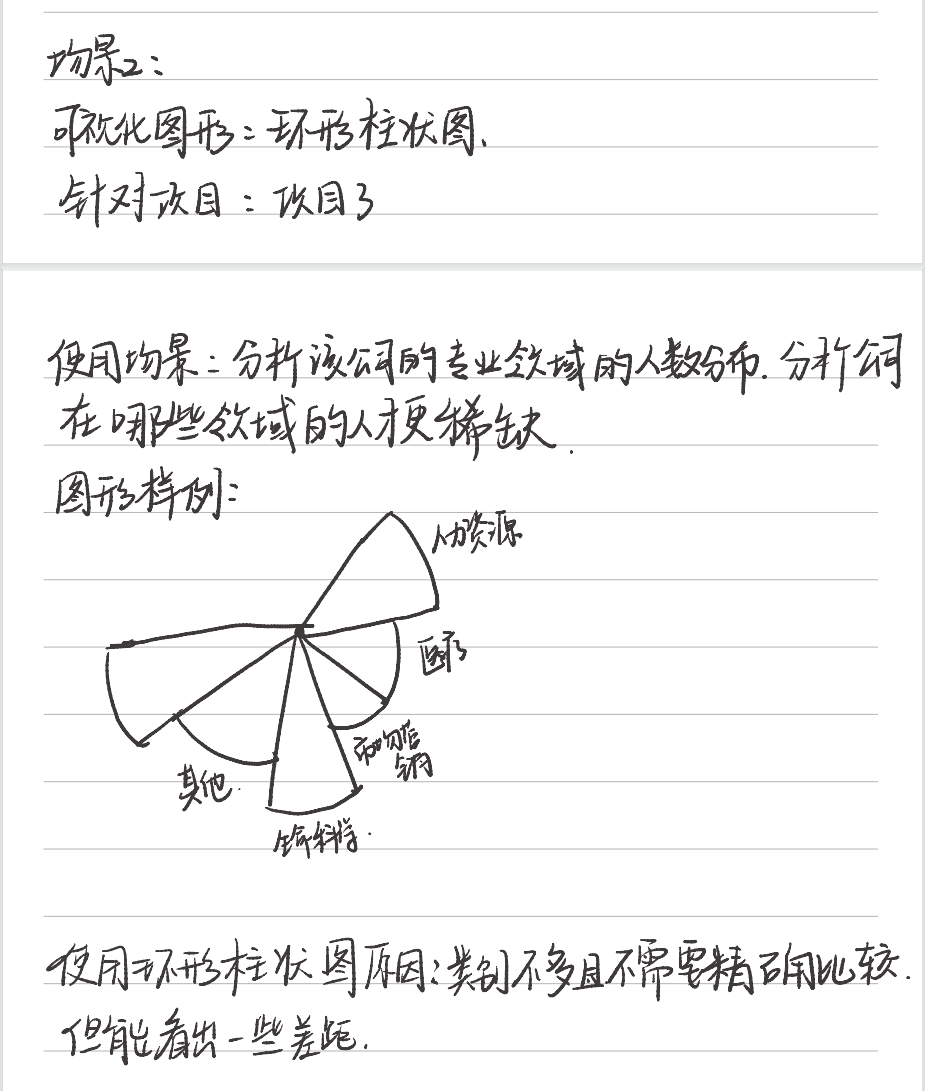 场景2:
可视化图形:环形柱状图.
针对项目:项目3
使用场景:分析该公司的专业领域的人数分布.分析公司
在哪些领域的人才更稀缺.
图形样例:
人力资源
医疗
市场营
销
其他.
生命科学.
使用环形柱状图原因:类别不多且不需要精确比较.
但能看出一些差距.